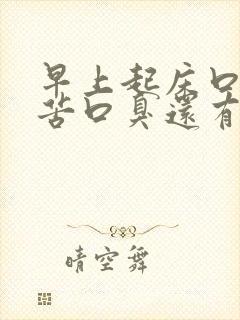 早上起床口
苦口臭還有
晴空舞